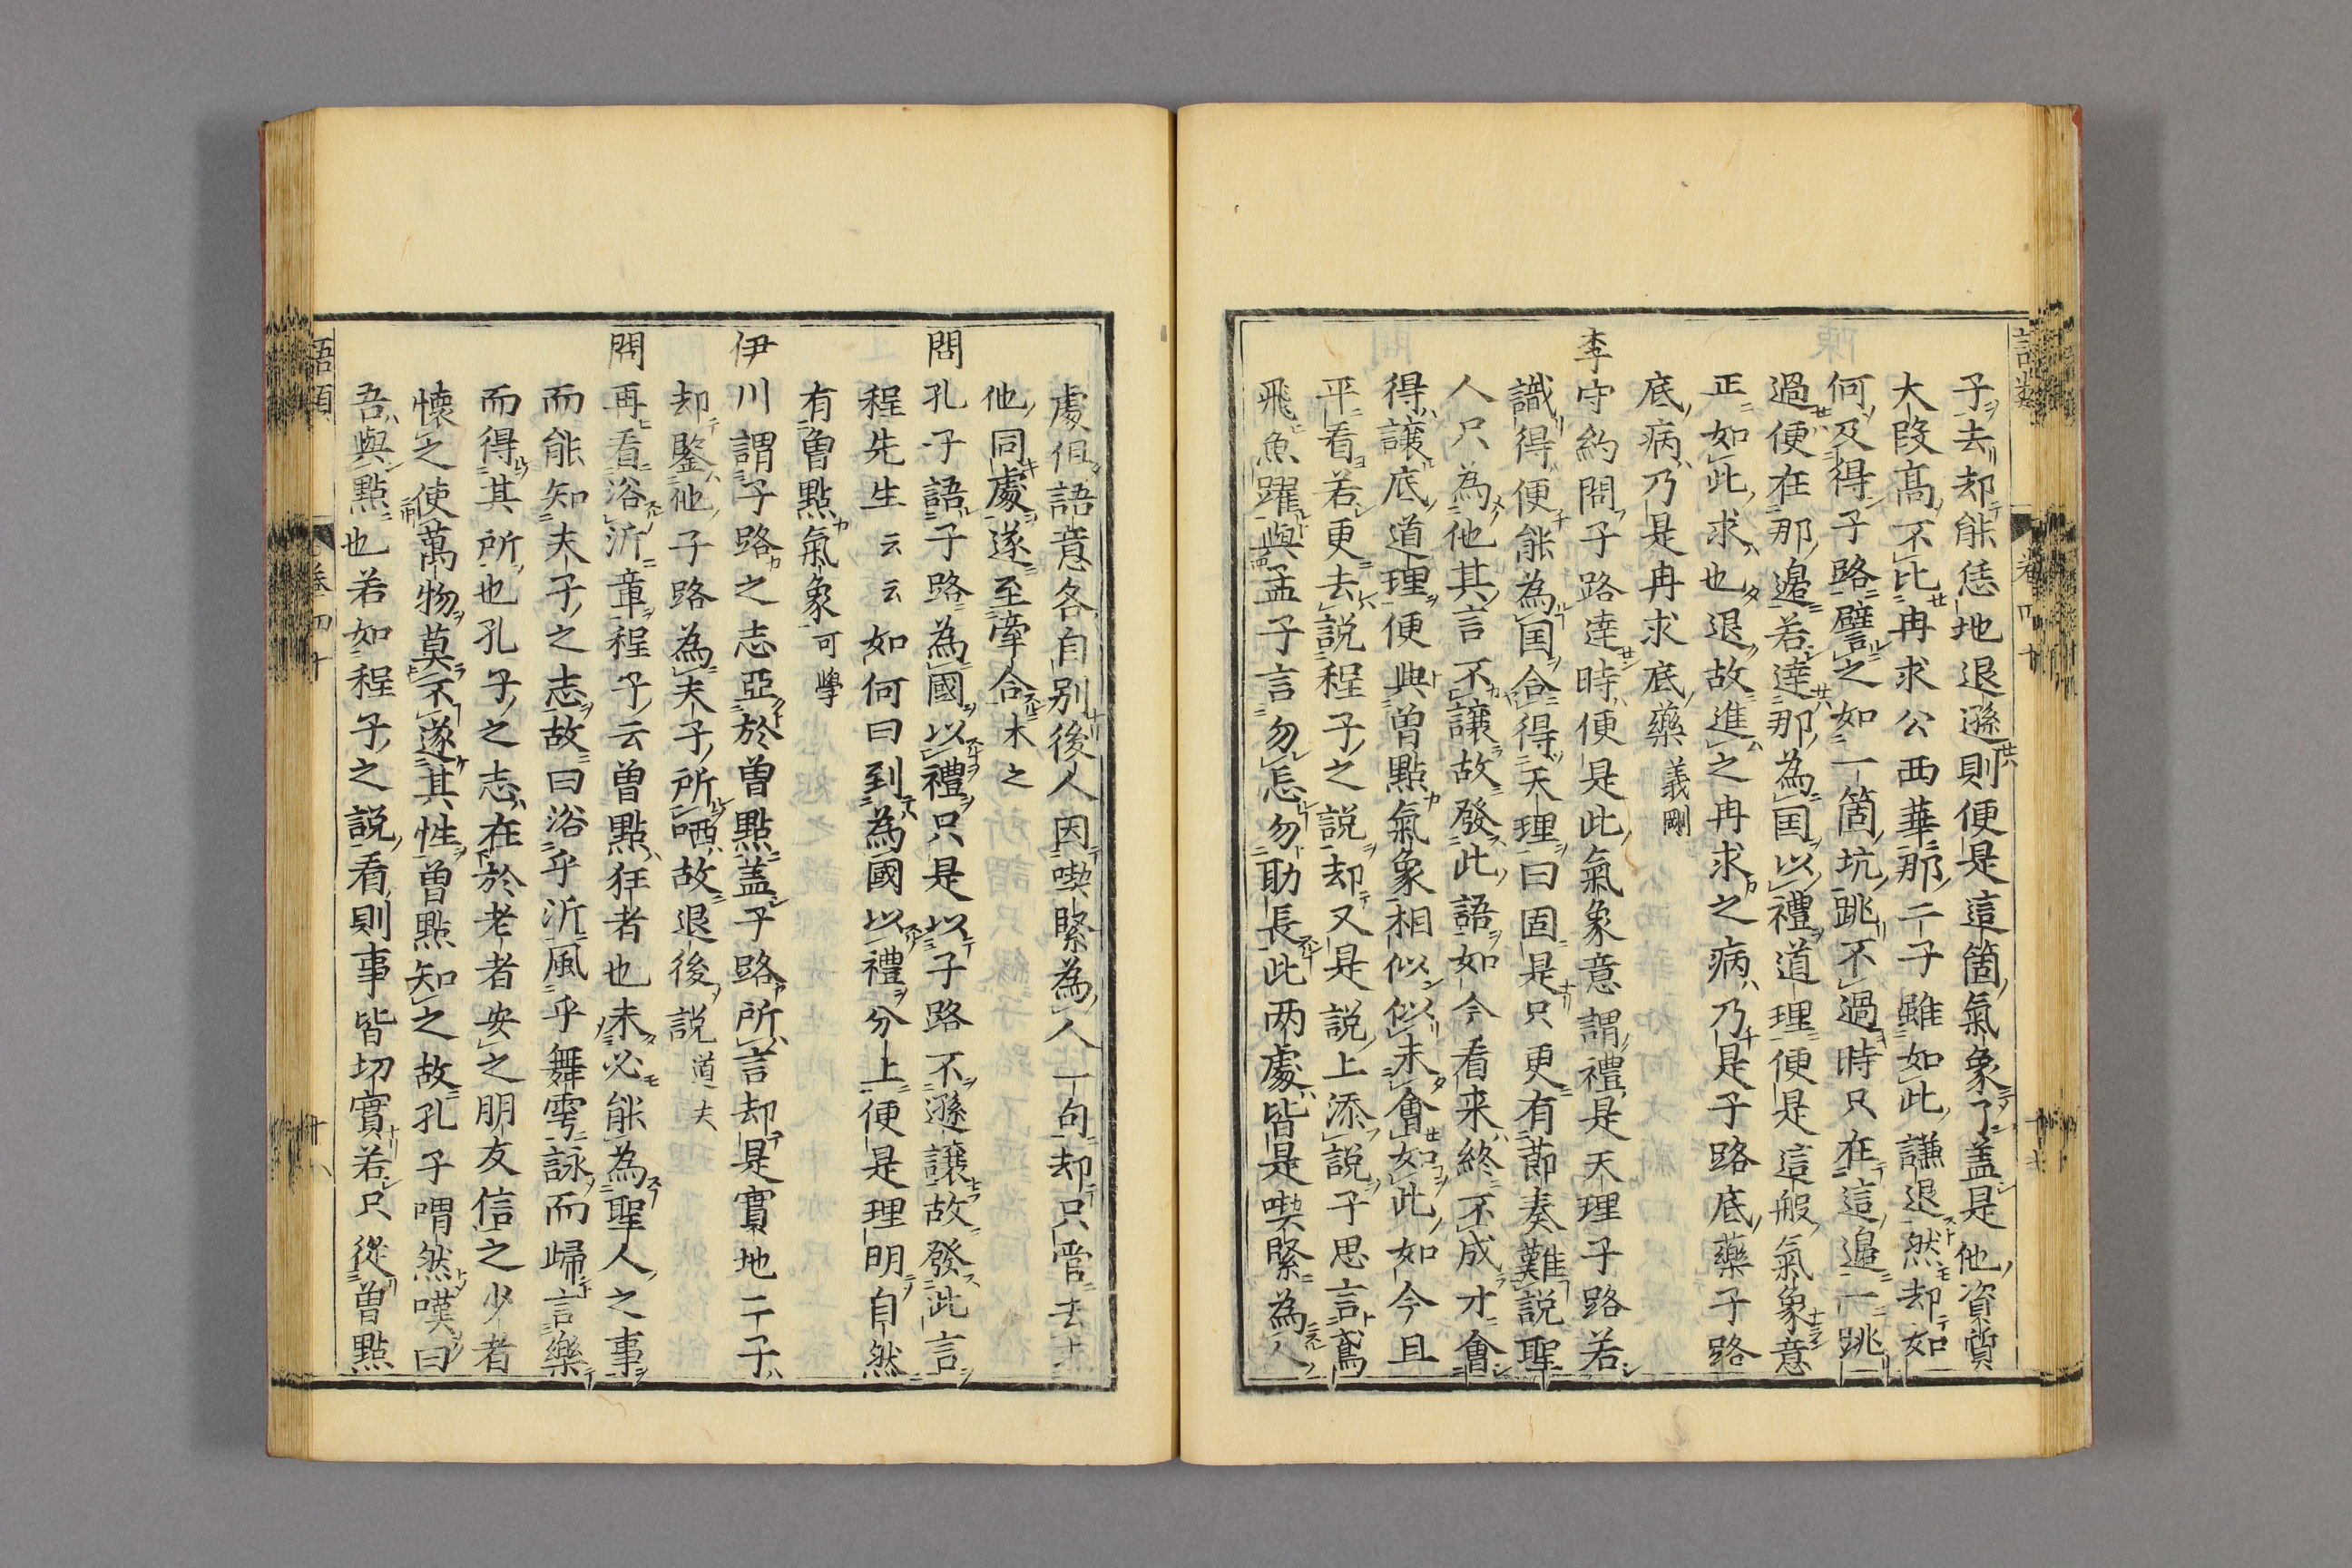 子去却能恁地退遜則便是這箇氣象了盖是他資質
大段髙不比冉求公西華那二子雖如此謙退然却如
何及得子路譬之如一箇坑跳不過時只在這邉一跳
過便在那邉若達那為国以禮道理便是這般氣象意
正如此求也退故進之冉求之病乃是子路底藥子路
底病乃是冉求底藥 義剛
李守約問子路達時便是此氣象意謂禮是天理子路若
識得便能為国合得天理曰固是只更有莭奏難説聖
人只為他其言不讓故發此語如今看来終不成才會
得讓底道理便與曽點氣象相似似未會如此如今且
平看若更去説程子之説却又是説上添説子思言鳶
飛魚躍與孟子言勿忘勿助長此两處皆是喫緊為人
處但語意各自別後人因喫緊為人一句却只管去求
他同處遂至牽合 木之
問孔子語子路為國以禮只是以子路不遜讓故發此言
程先生云云如何曰到為國以禮分上便是理明自然
有曽點氣象 可學
伊川謂子路之志亞於曽點盖子路所言却是實地二子
却鑒他子路為夫子所哂故退後説 道夫
問再看浴沂章程子云曽點狂者也未必能為聖人之事
而能知夫子之志故曰浴乎沂風乎舞雩詠而歸言樂
而得其所也孔子之志在於老者安之朋友信之少者
懷之使萬物莫不遂其性曽點知之故孔子喟然嘆曰
吾與點也若如程子之説看則事皆切實若只從曽點
語類 卷四十 十八